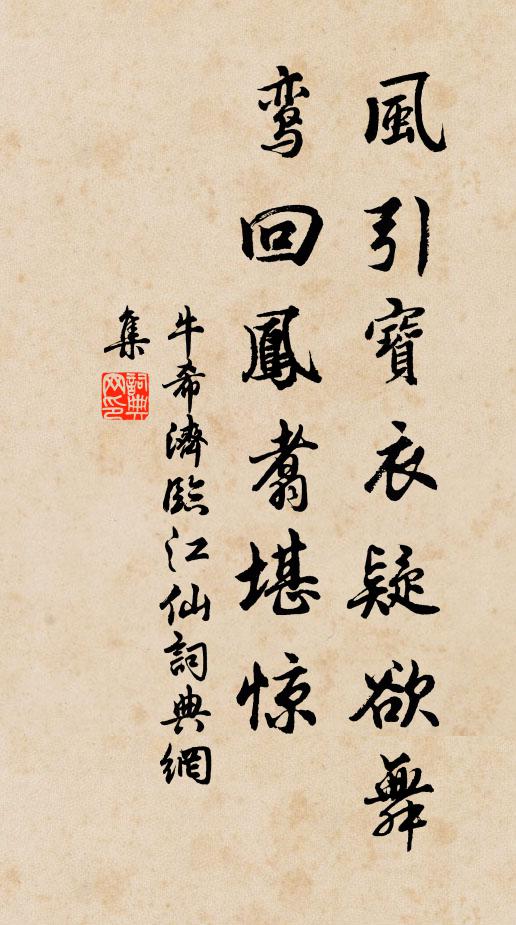 風引寶衣疑欲舞
鸾回鳳翥堪惊
牛希濟臨江仙詞典網
集
詞典
网印